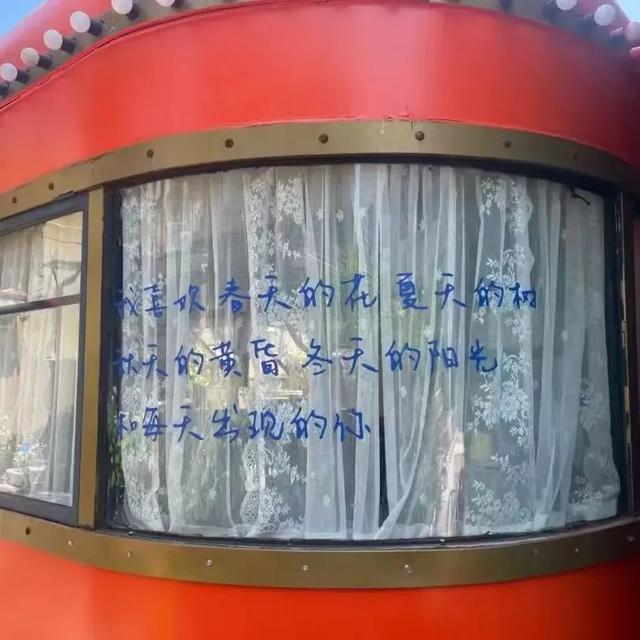 我喜欢春天的花 夏天的树
秋天的黄昏 冬天的阳光
和每天出现的你